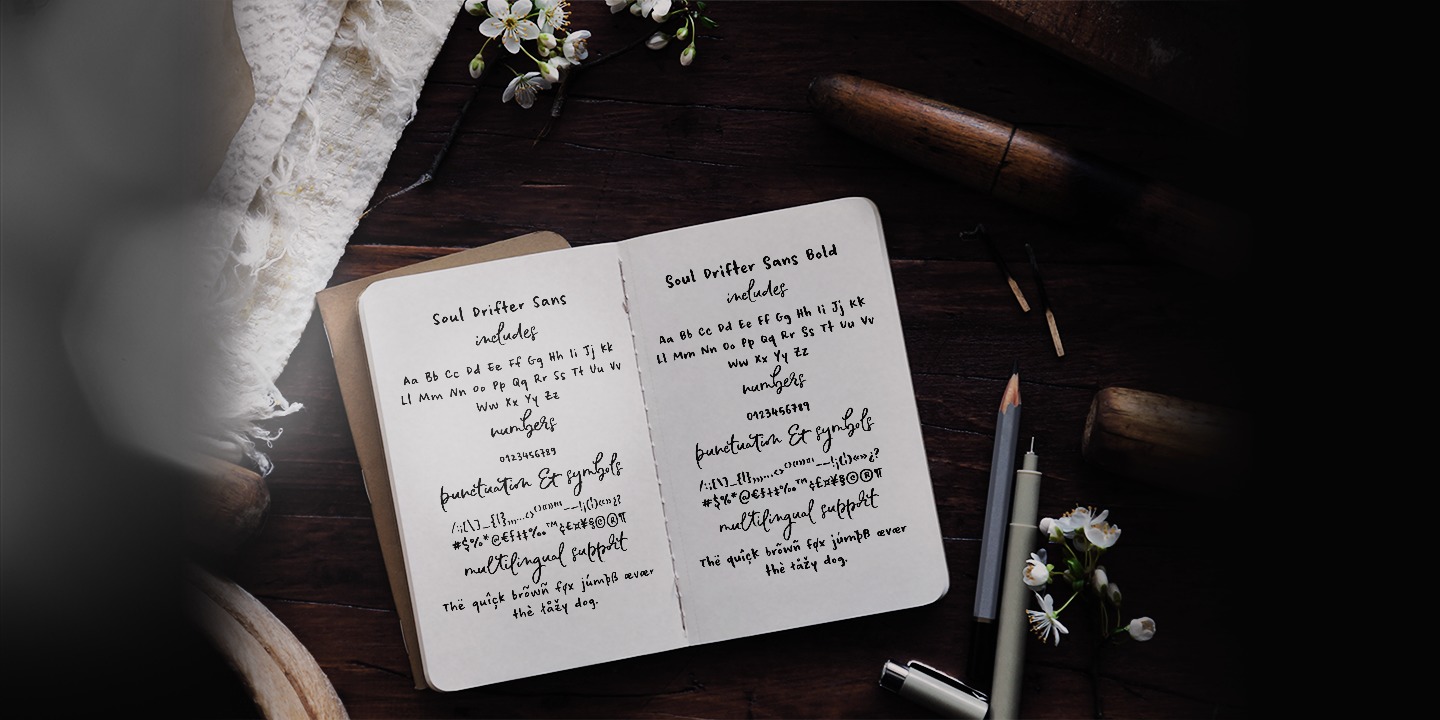 Soul Drifter Sans
includes
Aa Bb Cc Dd Ee Ff Gg Hh Ii Jj Kk
Ll Mm Nn Oo Pp Qq Rr Ss Tt Uu Vv
Ww Xx Yy Zz
numbers
0123456789
punctuation & symbols
#$%*@€£†‡‰™¢£¤¥§©®¶
multilingual support
Thë quîçk brõwñ føx júmþß ævær
thè łåžy dog.
Soul Drifter Sans Bold
includes
Aa Bb Cc Dd Ee Ff Gg Hh Ii Jj Kk
Ll Mm Nn Oo Pp Qq Rr Ss Tt Uu Vv
Ww Xx Yy Zz
numbers
0123456789
punctuation & symbols
#$%*@€£†‡‰™¢£¤¥§©®¶
multilingual support
Thë quîçk brõwñ føx júmþß ævær
thè łåžy dog.